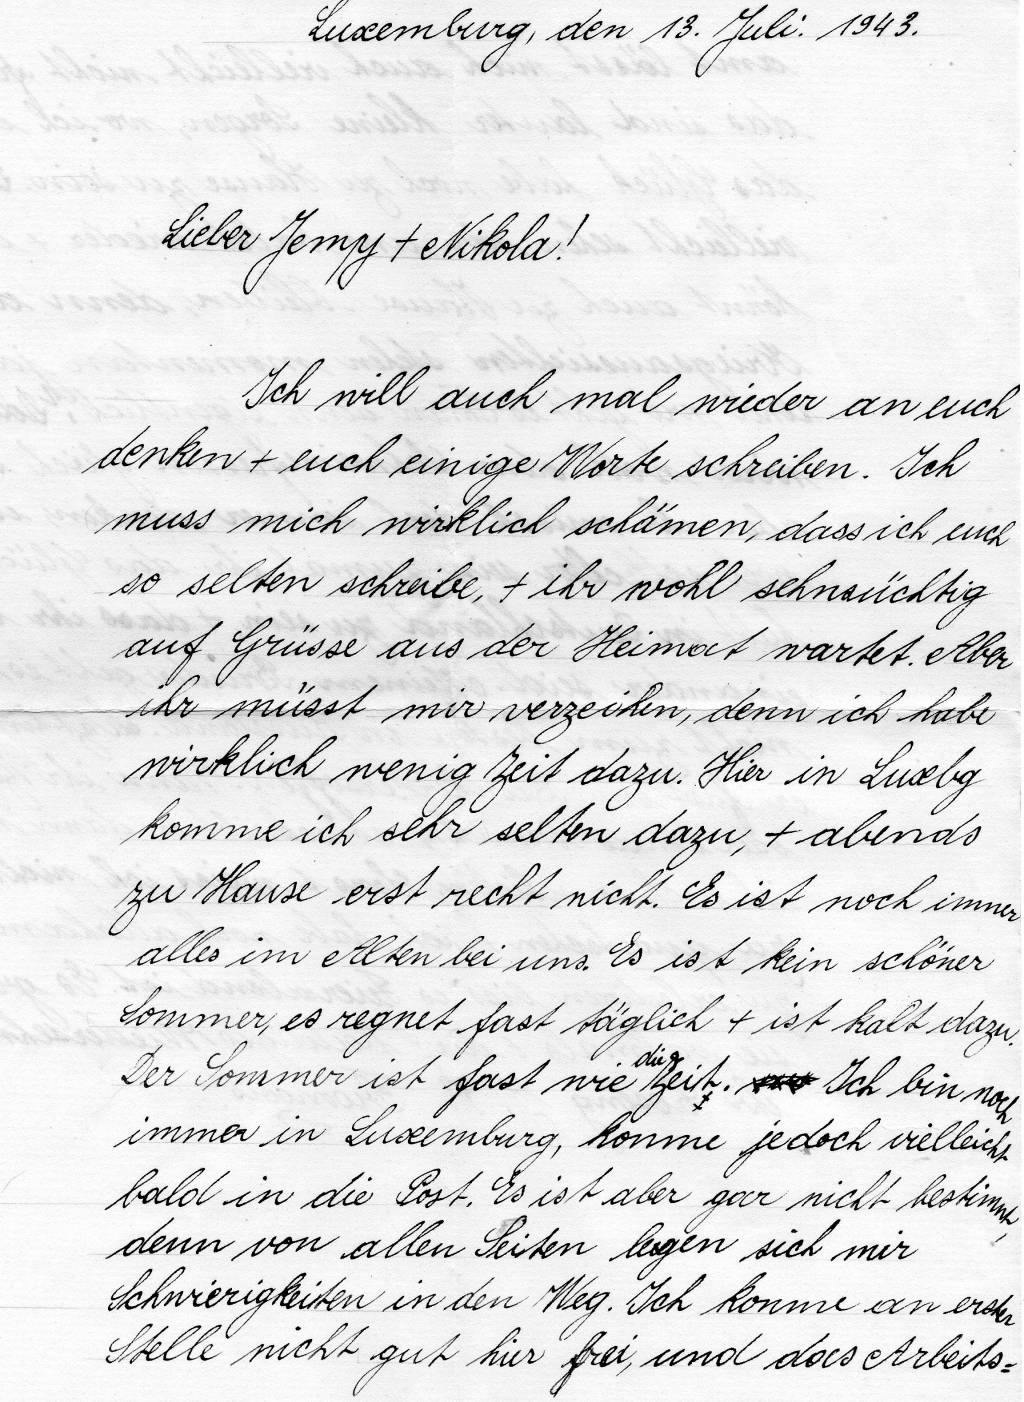 Luxemburg, den 13. Juli. 1943.
Lieber Jempy + Nikola!
Ich will auch mal wieder an euch
denken + euch einige Worte schreiben. Ich
muss mich wirklich schämen, dass ich euch
so selten schreibe, + ihr wohl sehnsüchtig
auf Grüsse aus der Heimat wartet. Aber
ihr müsst mir verzeihen, denn ich habe
wirklich wenig Zeit dazu. Hier in Luxbg
komme ich sehr selten dazu, + abends
zu Hause erst recht nicht. Es ist noch immer
alles im Alten bei uns. Es ist kein schöner
Sommer, es regnet fast täglich + ist kalt dazu.
Der Sommer ist fast wie die Zeit. Ich bin noch
immer in Luxemburg, komme jedoch vielleicht
bald in die Post. Es ist aber gar nicht bestimmt,
denn von allen Seiten legen sich mir
Schwierigkeiten in den Weg. Ich komme an erster
Stelle nicht gut hier frei, und das Arbeits=